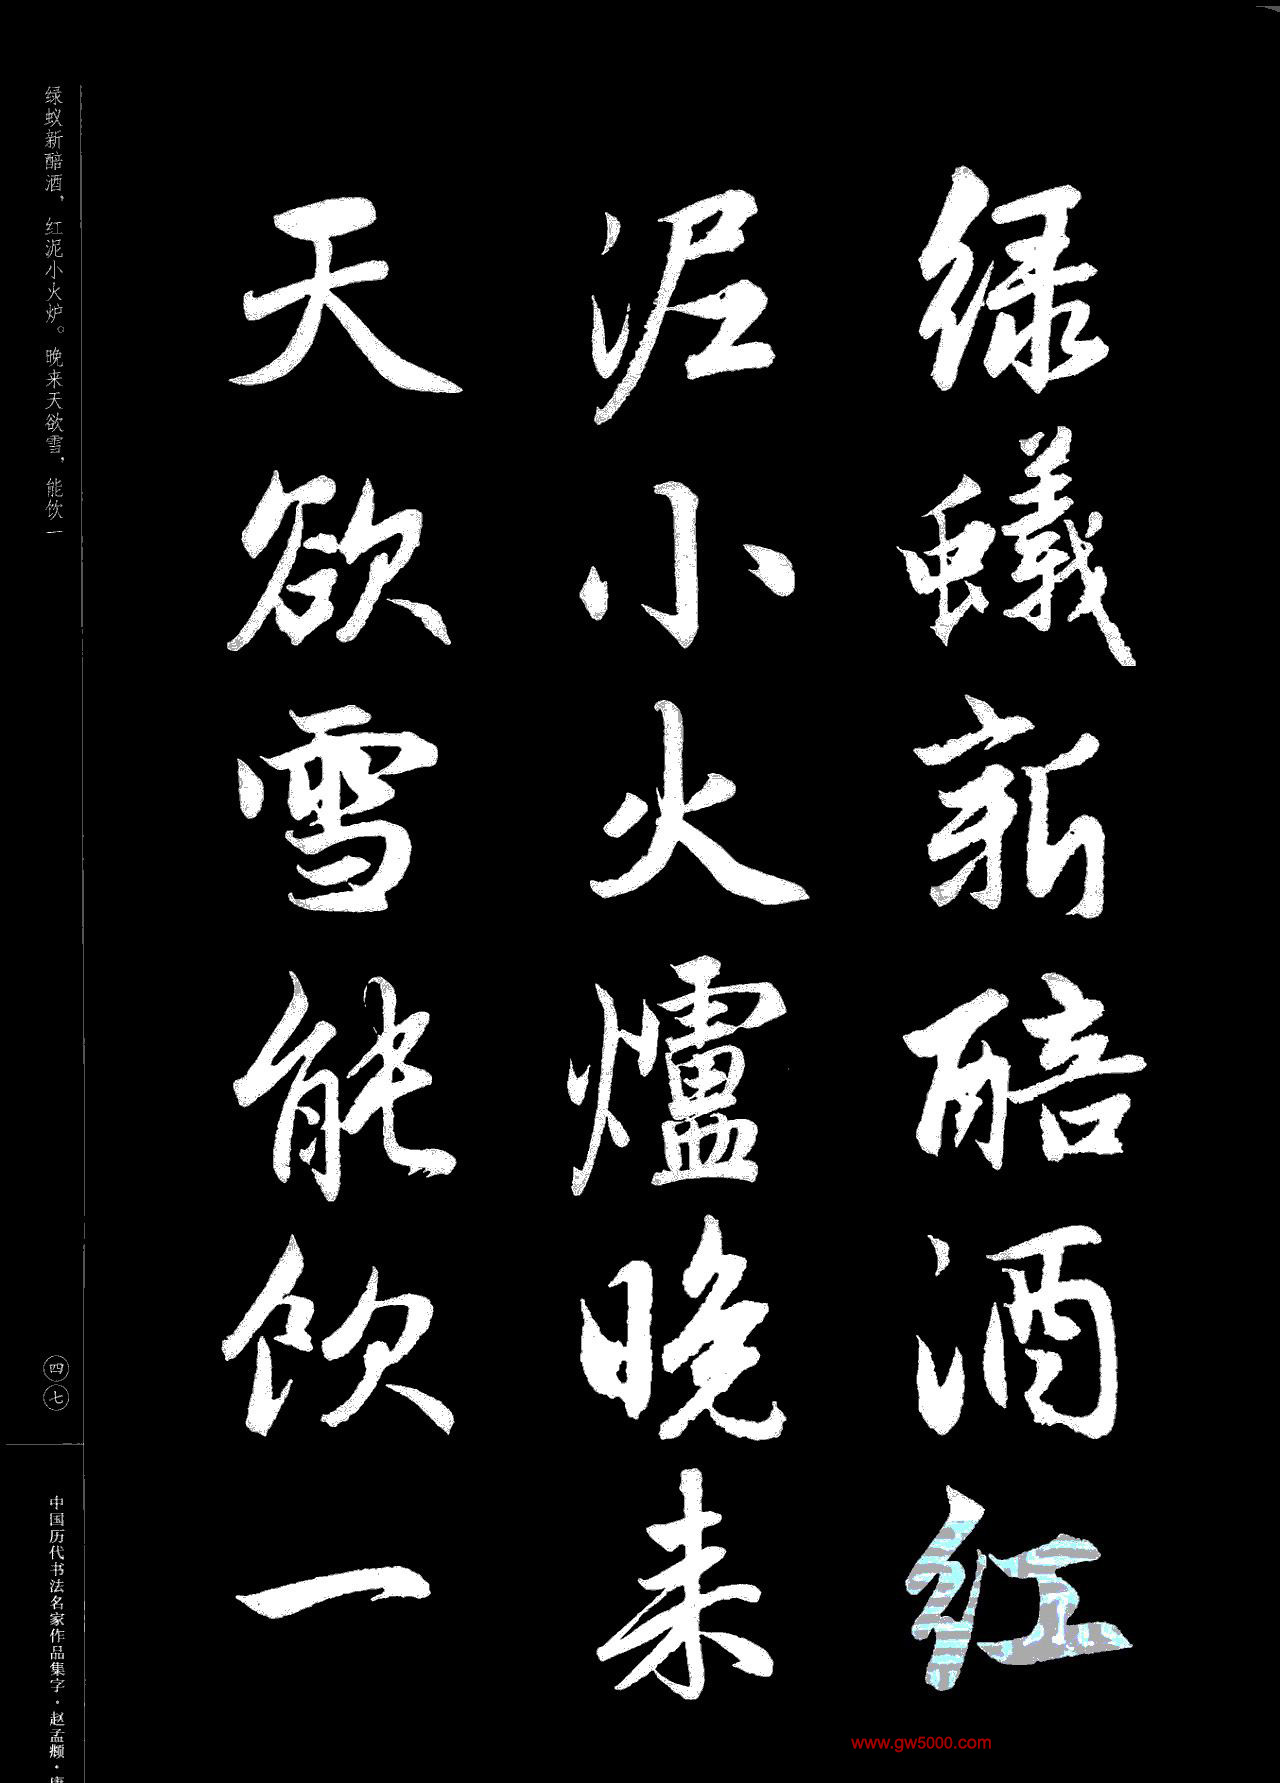 绿蟻新醅酒红
泥小火爐晚来
天欲雪能饮一
绿蚁新醅酒，红泥小火炉。晚来天欲雪，能饮一
四七
中国历代书法名家作品集字·赵孟頫·
www.gw5000.com